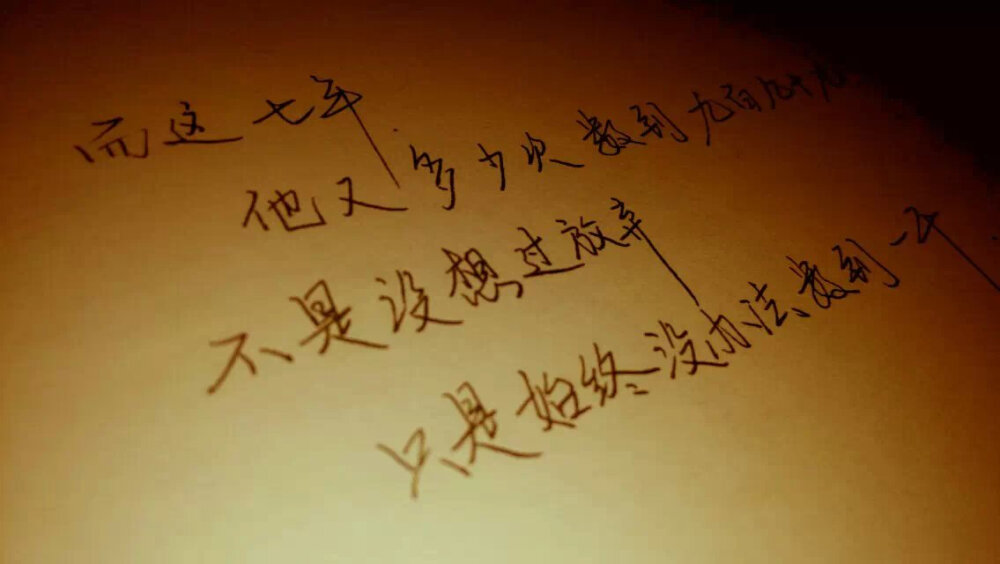 而这七年
他又多少次数到九百九十九
不是没想过放弃
只是始终没办法数到一千